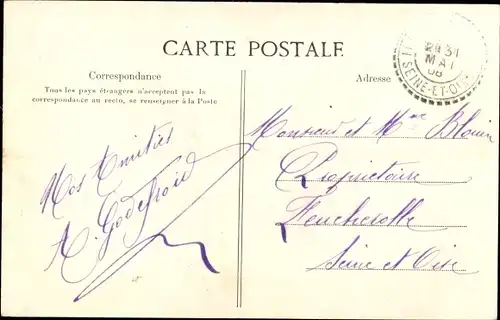 CARTE POSTALE
Correspondance
Tous les pays étrangers n'acceptent pas la
correspondance au recto, se renseigner à la Poste
Adresse
31
MAI
08
SEINE-ET-OISE
Nos Amitiés
A. Godefroid
Monsieur et Mme Blouin
Propriétaire
Feucherolle
Seine et Oise